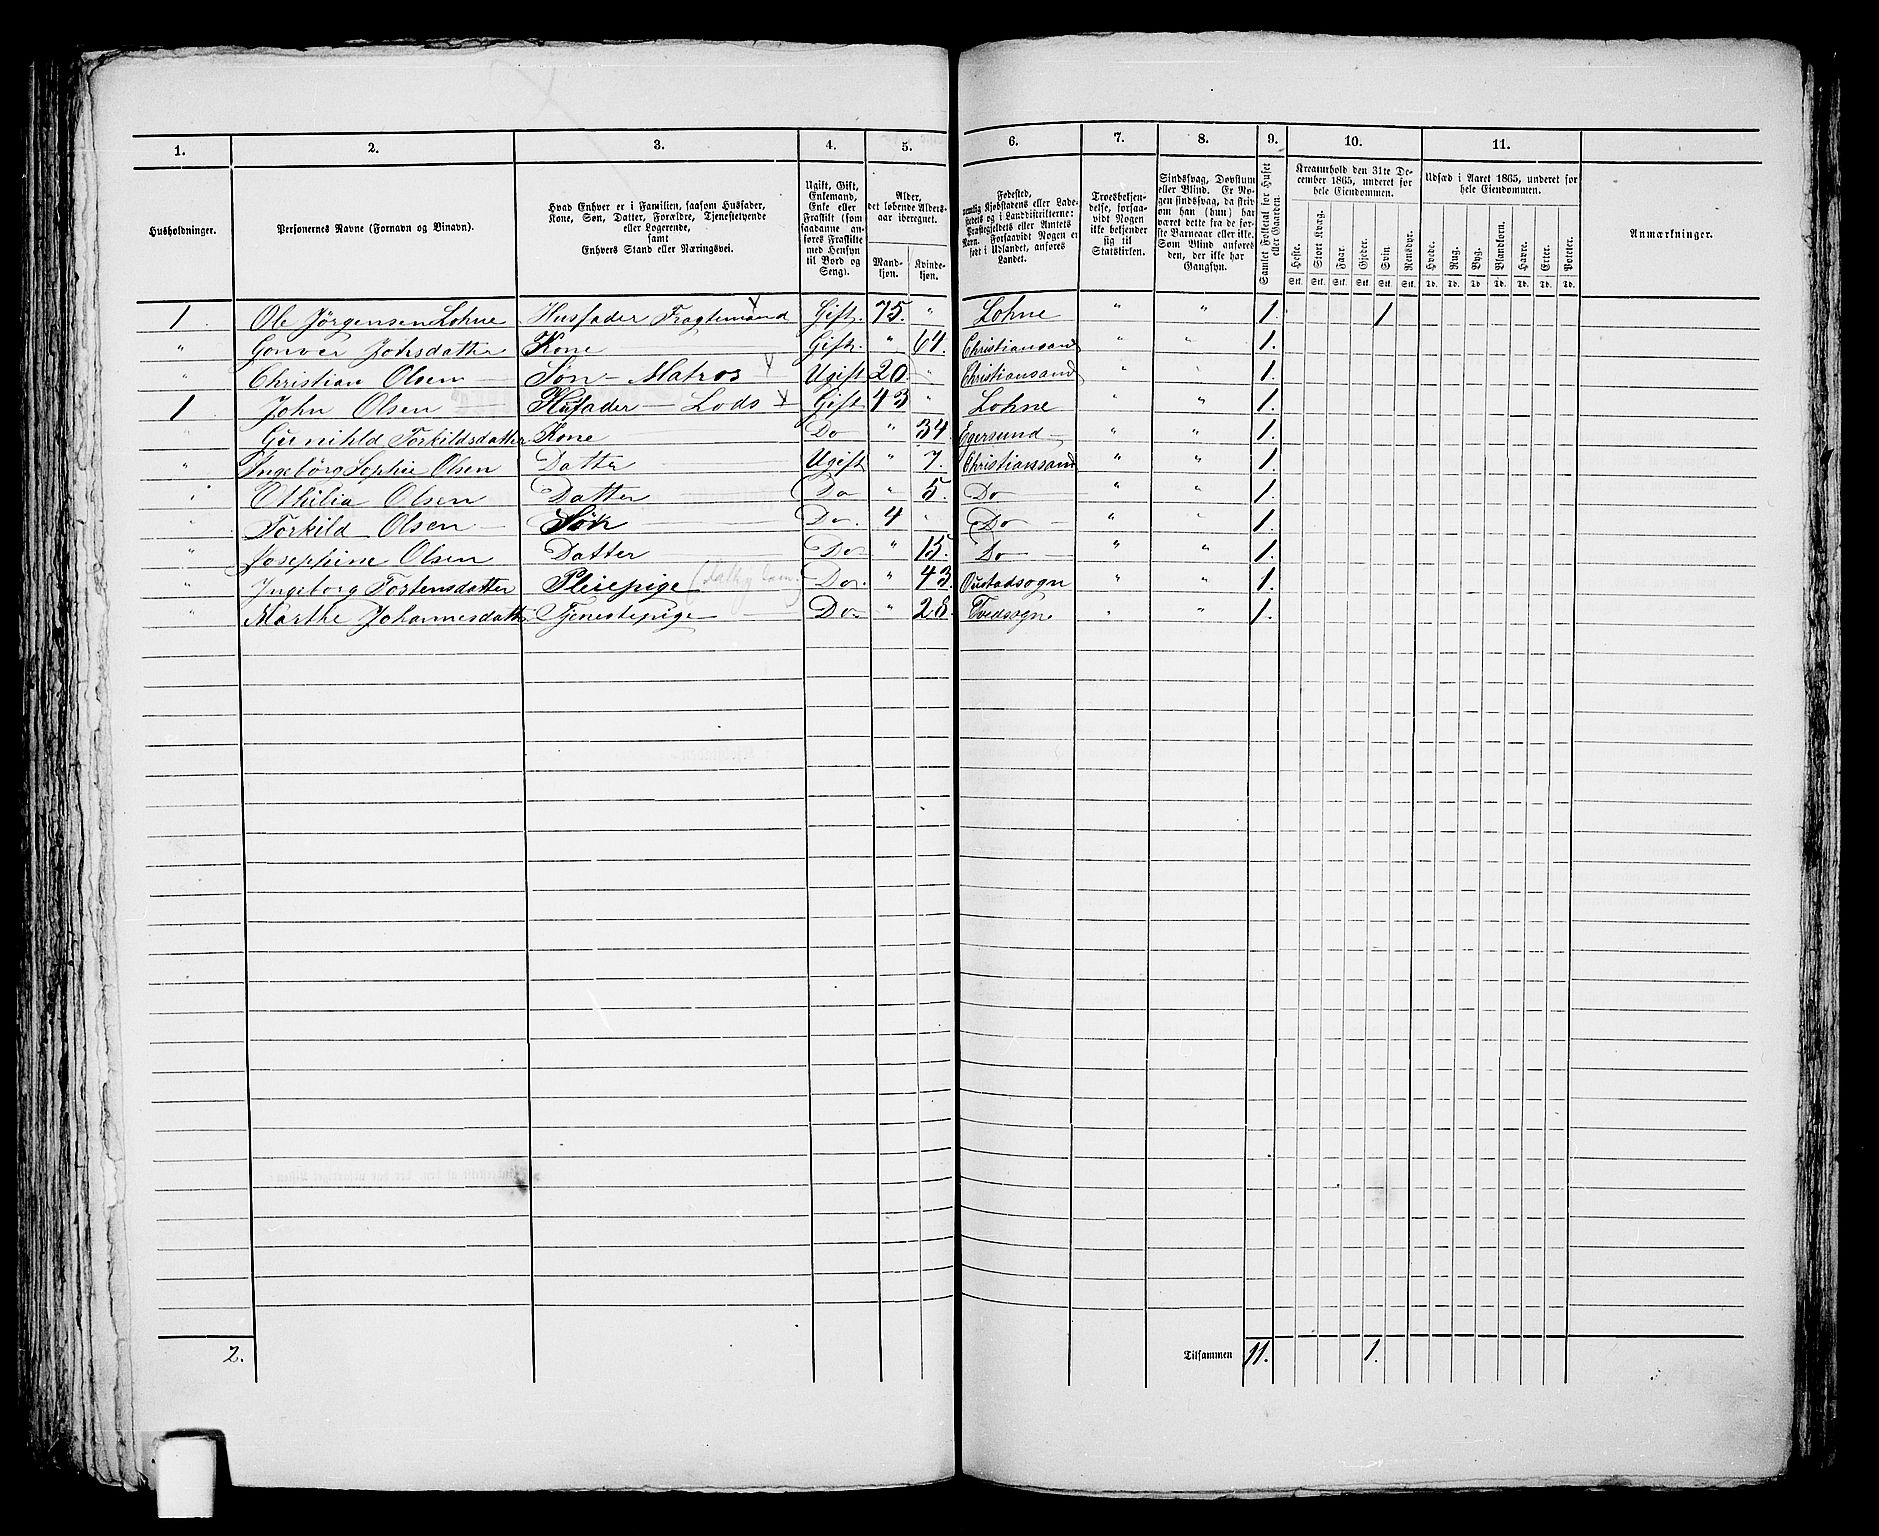 1. 2. 3. 4. 5. 6. 7. 8. 9. 10. 11.
Husholdninger.
Personernes Navne (Fornavn og Binavn).
Hvad Enhver er i Familien, saasom Husfader,
Kone, Søn, Datter, Forældre, Tjenestetyende
eller Logerende,
samt
Enhvers Stand eller Næringsvei.
Ugift, Gift,
Enkemand,
Enke eller
Fraskilt (som
saadanne an-
føres Fraskilte
med Hensyn
til Bord og
Seng).
Alder,
det løbende Alders-
aar iberegnet.
Mand-
kjøn.
Kvinde-
kjøn.
Fødested,
nemlig Kjøbstadens eller Lade-
stedets og i Landdistrikterne:
Præstegjeldets eller Amtets
Navn. Forsaavidt Nogen er
født i Udlandet, anføres
Landet.
Troesbekjen-
delse, forsaa-
vidt Nogen
ikke bekjender
sig til
Statskirken.
Sindssvag, Døvstum
eller Blind. Er No-
gen sindssvag, da skriv-
om han (hun) har
været dette fra de før-
ste Barneaar eller ikke.
Som Blind anføres
den, der ikke har
Gangsyn.
Samlet Folketal for Huset
eller Gaarden.
Kreaturhold den 31te De-
cember 1865, underet for
hele Eiendommen.
Heste. Stort Kvæg. Faar. Gjeder. Svin. Rensdyr.
Stk. Stk. Stk. Stk. Stk. Stk.
Udsæd i Aaret 1865, underet for
hele Eiendommen.
Hvede. Rug. Byg. Blandkorn. Havre. Erter. Poteter.
Td. Td. Td. Td. Td. Td. Td.
Anmærkninger.
1. Ole Jörgensen Lohne Husfader Fragtemand Gift. 75. " Lohne " " 1. 1
" Gonver Johsdatter Kone Gift. " 64. Christiansand " " 1.
" Christian Olsen Søn - Matros Ugift 20 " Christiansand " " 1.
1 John Olsen Husfader - Lods Gift 43 " Lohne " " 1.
" Gunihld Torkildsdatter Kone Do " 34. Egersund " " 1.
" Ingebörg Sophie Olsen Datter Ugift " 7. Christianssand " " 1.
" Othilia Olsen Datter Do " 5. Do " " 1.
" Torkild Olsen Søn Do. 4 " Do " " 1.
" Josephine Olsen Datter Do " 15. Do " " 1.
" Ingeborg Tostensdatter Pleiepige Do. " 43. Oustadsogn " " 1.
" Marthe Johannesdatter Tjenestepige Do " 28. Tvedsogn " " 1.
2. Tilsammen 11. 1.